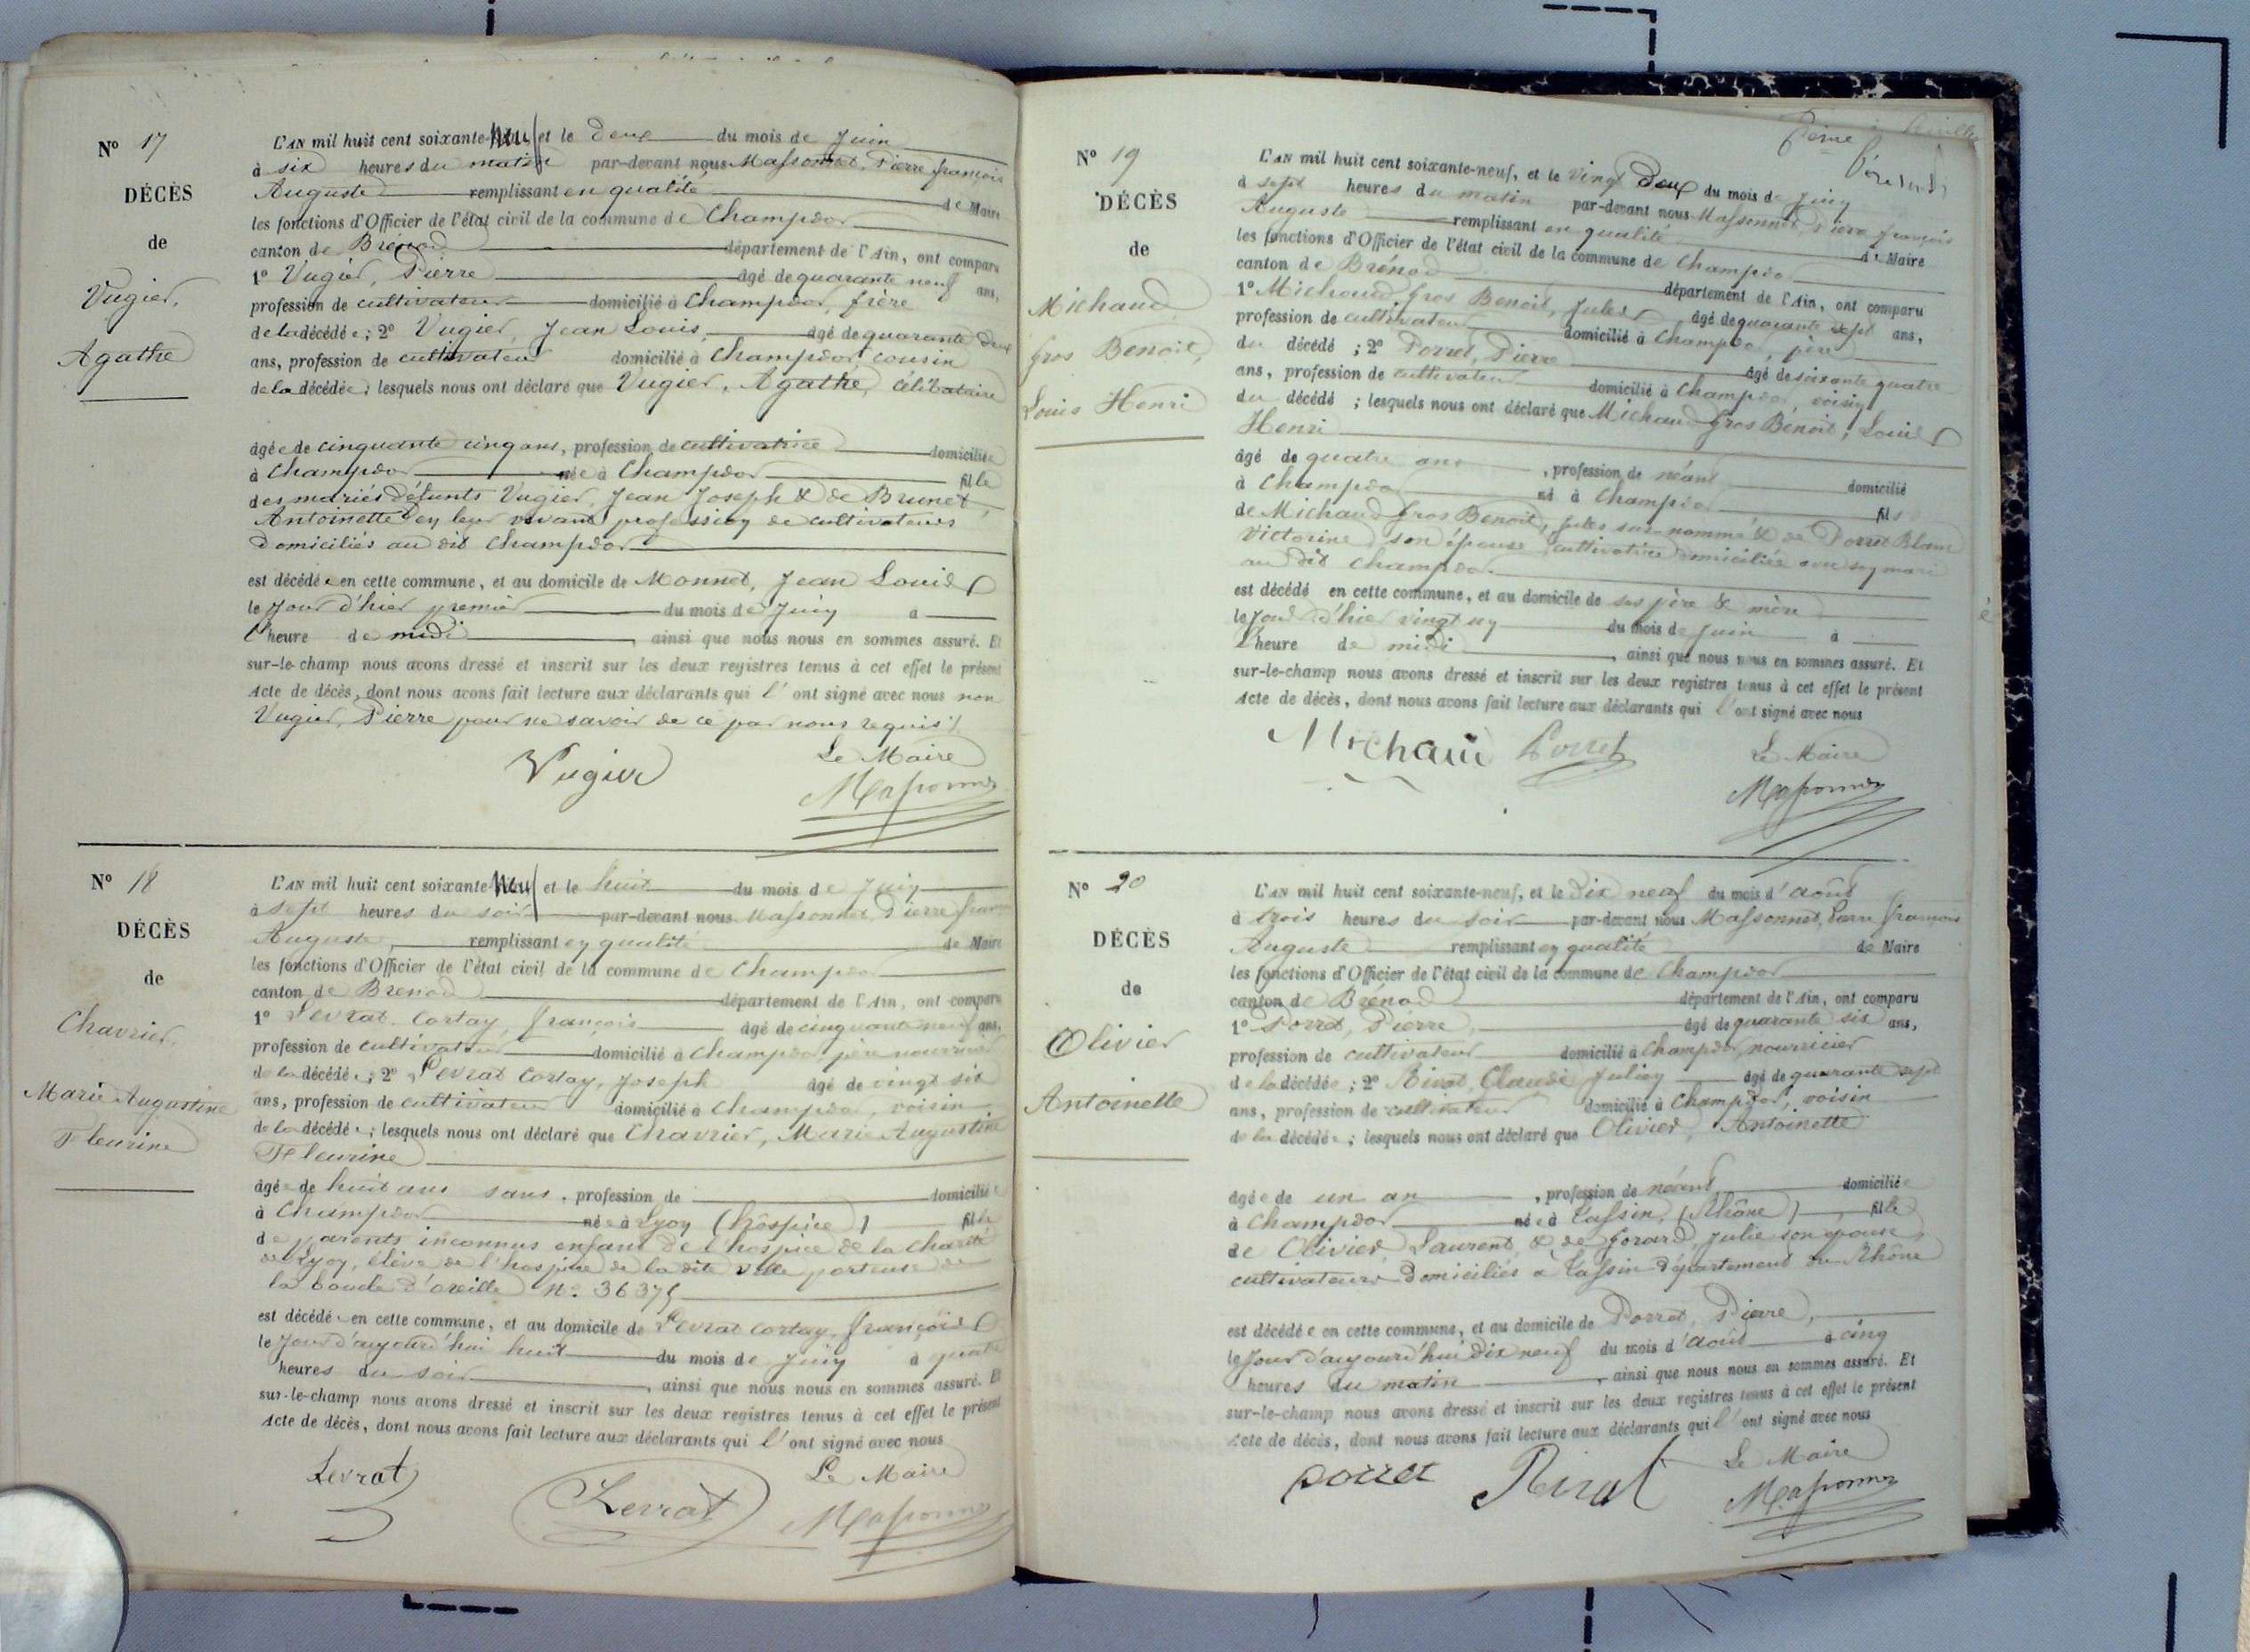 N° 17
DÉCÈS
de
Vugier,
Agathe
L'AN mil huit cent soixante-neuf et le deux du mois de Juin
à six heures du matin par-devant nous Massonnet, Pierre françois
Auguste remplissant en qualité de Maire
les fonctions d'Officier de l'état civil de la commune de Champdor
canton de Brénod département de l'Ain, ont comparu
1° Vugier, Pierre âgé de quarante neuf ans,
profession de cultivateur domicilié à Champdor, frère
de la décédée; 2° Vugier, Jean Louis, âgé de quarante deux
ans, profession de cultivateur domicilié à Champdor, cousin
de la décédée; lesquels nous ont déclaré que Vugier, Agathe, célibataire
âgée de cinquante cinq ans, profession de cultivatrice domiciliée
à Champdor née à Champdor fille
des mariés défunts Vugier, Jean Joseph & de Brunet,
Antoinette en leur vivant profession de cultivateurs
domiciliés au dit Champdor
est décédée en cette commune, et au domicile de Monnet, Jean Louis
le Jour d'hier premier du mois de Juin à
l'heure de midi, ainsi que nous nous en sommes assuré. Et
sur-le-champ nous avons dressé et inscrit sur les deux registres tenus à cet effet le présent
Acte de décès, dont nous avons fait lecture aux déclarants qui l'ont signé avec nous non
Vugier, Pierre pour ne savoir de ce par nous requis
Vugier
Le Maire
Massonnet
N° 18
DÉCÈS
de
Chavrier,
Marie Augustine
Fleurine
L'AN mil huit cent soixante-neuf et le huit du mois de Juin
à sept heures du soir par-devant nous Massonnet, Pierre françois
Auguste, remplissant en qualité de Maire
les fonctions d'Officier de l'état civil de la commune de Champdor
canton de Brenod département de l'Ain, ont comparu
1° Levrat Cortay, françois âgé de cinquante neuf ans,
profession de cultivateur domicilié à Champdor, père nourricier
de la décédée; 2° Levrat Cortay, Joseph âgé de vingt six
ans, profession de cultivateur domicilié à Champdor, voisin
de la décédée; lesquels nous ont déclaré que Chavrier, Marie Augustine
Fleurine
âgée de huit ans sans, profession de domiciliée
à Champdor née à Lyon (hôspice) fille
de parents inconnus enfant de l'hospice de la Charité
de Lyon, élève de l'hospice de la dite ville porteuse de
la boucle d'oreille N° 36375
est décédée en cette commune, et au domicile de Levrat Cortay, françois
le Jour d'aujourd'hui huit du mois de Juin à quatre
heures du soir, ainsi que nous nous en sommes assuré. Et
sur-le-champ nous avons dressé et inscrit sur les deux registres tenus à cet effet le présent
Acte de décès, dont nous avons fait lecture aux déclarants qui l'ont signé avec nous
Levrat
Levrat
Le Maire
Massonnet
N° 19
DÉCÈS
de
Michaud
Gros Benoit,
Louis Henri
L'AN mil huit cent soixante-neuf, et le vingt Deux du mois de Juin
à sept heures du matin par-devant nous Massonnet, Pierre françois
Auguste remplissant en qualité de Maire
les fonctions d'Officier de l'état civil de la commune de Champdor
canton de Brénod département de l'Ain, ont comparu
1° Michaud Gros Benoit, Jules âgé de quarante sept ans,
profession de cultivateur domicilié à Champdor, père
du décédé; 2° Porret, Pierre âgé de soixante quatre
ans, profession de cultivateur domicilié à Champdor, voisin
du décédé; lesquels nous ont déclaré que Michaud Gros Benoit, Louis
Henri
âgé de quatre ans, profession de néant domicilié
à Champdor né à Champdor fils
de Michaud Gros Benoit, Jules sus nommé & de Porret Blanc
Victorine son épouse cultivatrice domiciliée avec son mari
au dit Champdor
est décédé en cette commune, et au domicile de ses père & mère
le Jour d'hier vingt un du mois de Juin à
L'heure de midi, ainsi que nous nous en sommes assuré. Et
sur-le-champ nous avons dressé et inscrit sur les deux registres tenus à cet effet le présent
Acte de décès, dont nous avons fait lecture aux déclarants qui l'ont signé avec nous
Michaud Porret
Le Maire
Massonnet
N° 20
DÉCÈS
de
Olivier
Antoinette
L'AN mil huit cent soixante-neuf, et le Dix neuf du mois d'août
à trois heures du soir par-devant nous Massonnet, Pierre françois
Auguste remplissant en qualité de Maire
les fonctions d'Officier de l'état civil de la commune de Champdor
canton de Brénod département de l'Ain, ont comparu
1° Porret, Pierre, âgé de quarante six ans,
profession de cultivateur domicilié à Champdor, nourricier
de la décédée; 2° Rivat, Claude Julien âgé de quarante sept
ans, profession de cultivateur domicilié à Champdor, voisin
de la décédée; lesquels nous ont déclaré que Olivier, Antoinette
âgée de un an, profession de néant domiciliée
à Champdor née à Tassin, (Rhône), fille
de Olivier, Laurent, & de Gorard Julie son épouse,
cultivateurs domiciliés à Tassin département du Rhône
est décédée en cette commune, et au domicile de Porret, Pierre,
le Jour d'aujourd'hui Dix neuf du mois d'août à cinq
heures du matin, ainsi que nous nous en sommes assuré. Et
sur-le-champ nous avons dressé et inscrit sur les deux registres tenus à cet effet le présent
Acte de décès, dont nous avons fait lecture aux déclarants qui l'ont signé avec nous
porret Rivat
Le Maire
Massonnet